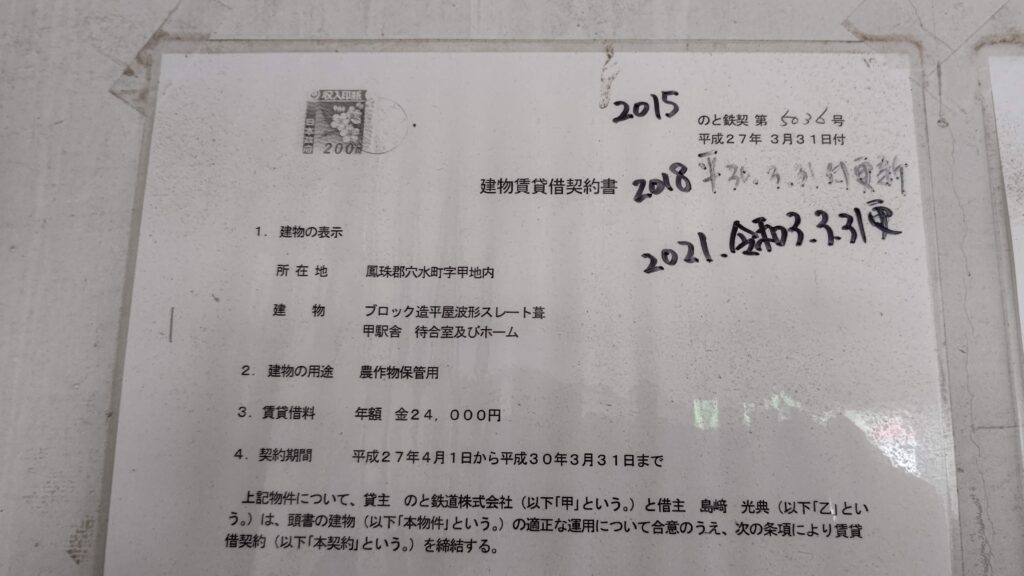 収入印紙
日本政府
200円
2015
のと鉄契 第 5036 号
平成27年 3月31日付
建物賃貸借契約書
2018 平30.3.31付更新
2021.令和3.3.31更
1. 建物の表示
所 在 地 鳳珠郡穴水町字甲地内
建 物 ブロック造平屋波形スレート葺
甲駅舎 待合室及びホーム
2. 建物の用途 農作物保管用
3. 賃貸借料 年額 金24,000円
4. 契約期間 平成27年4月1日から平成30年3月31日まで
上記物件について、貸主 のと鉄道株式会社(以下「甲」という。)と借主 島﨑 光典(以下「乙」とい
う。)は、頭書の建物(以下「本物件」という。)の適正な運用について合意のうえ、次の条項により賃貸
借契約(以下「本契約」という。)を締結する。